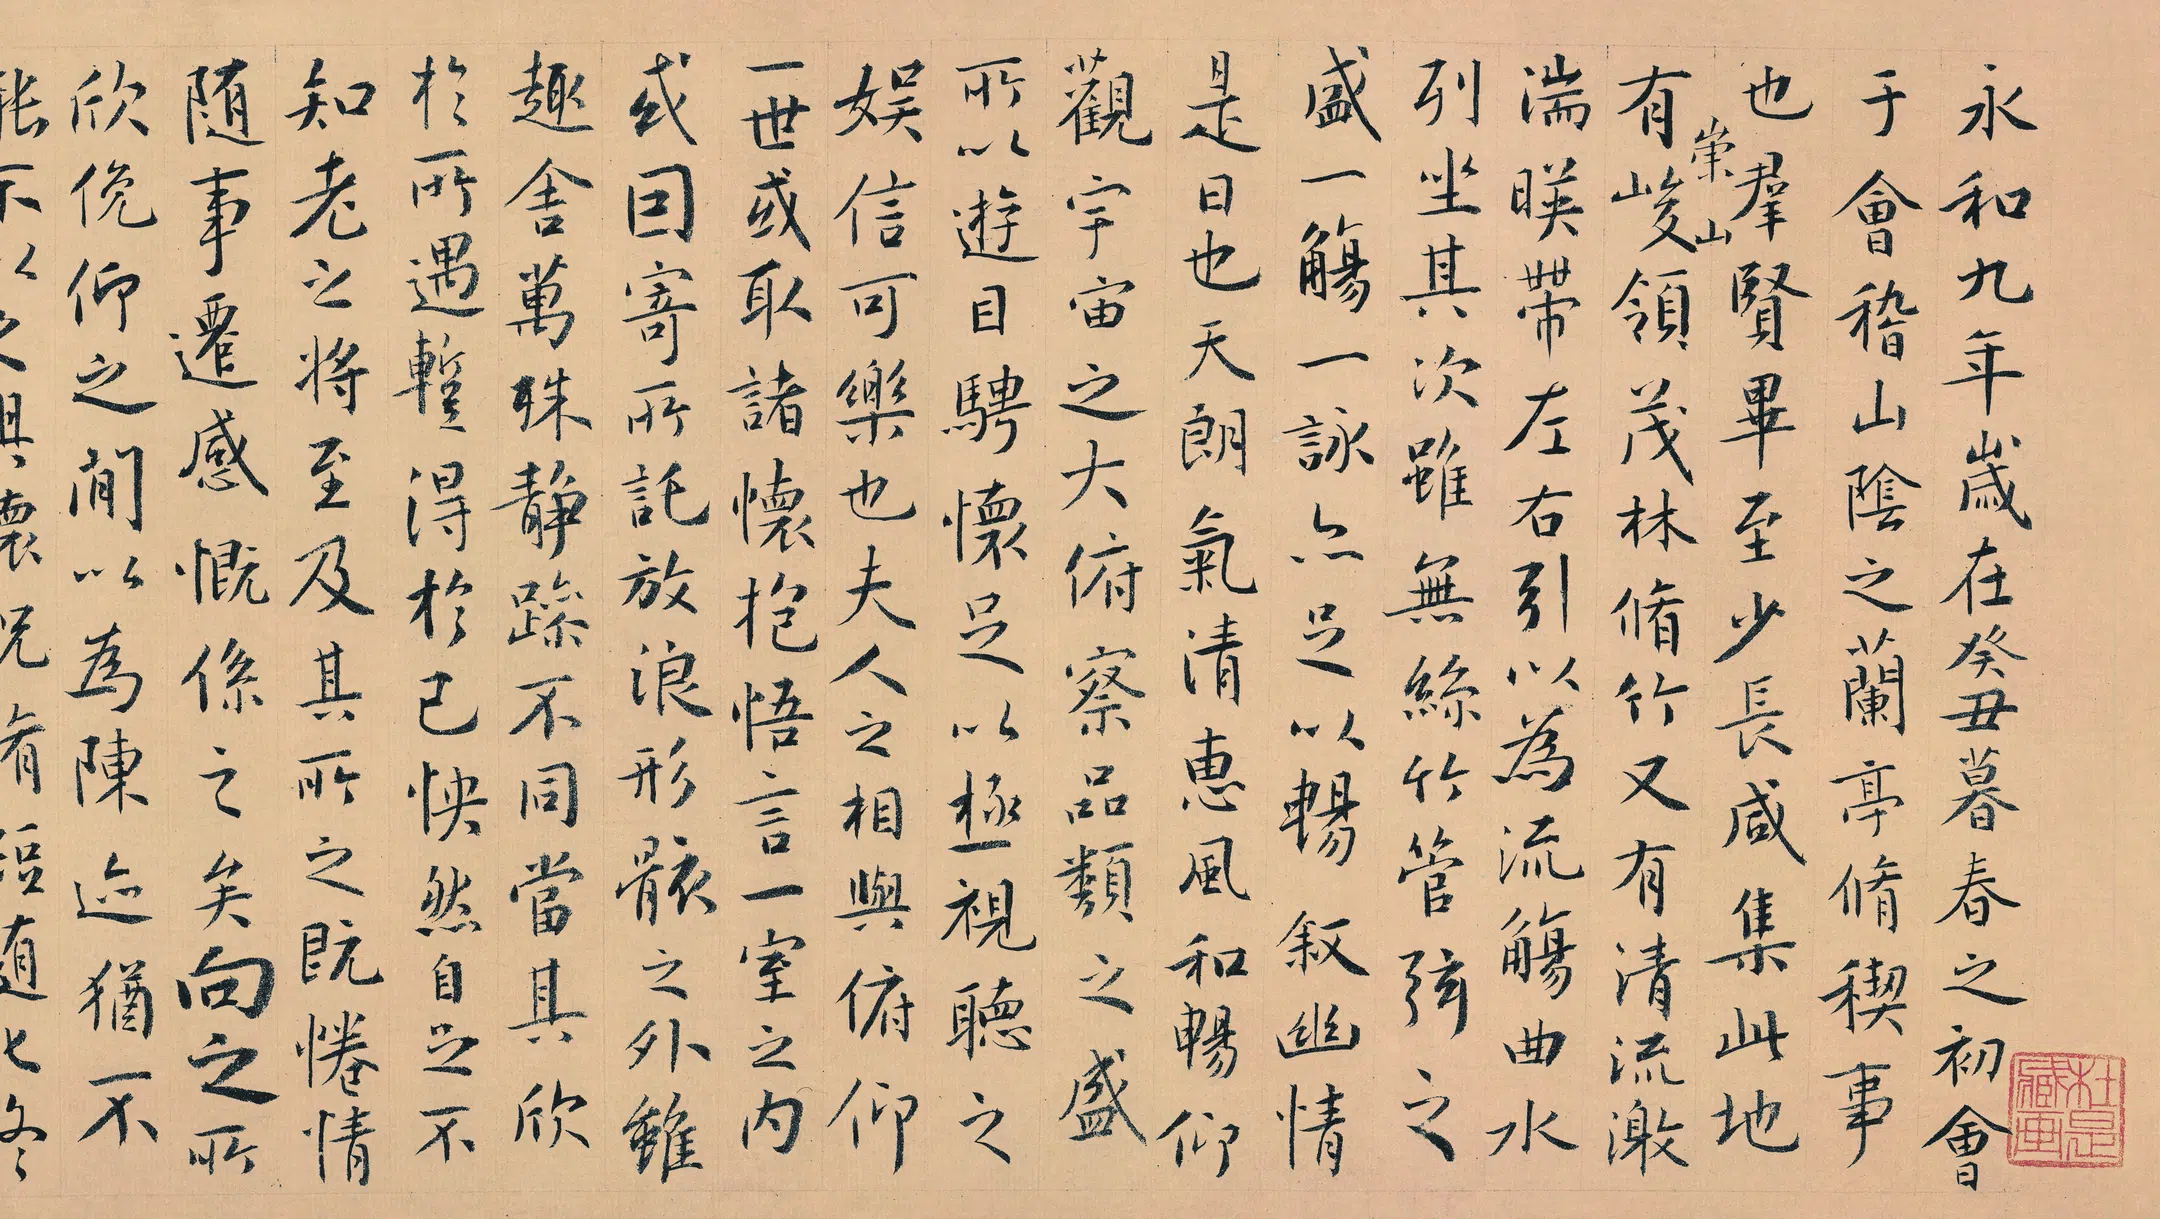 永和九年歲在癸丑暮春之初會
于會稽山陰之蘭亭脩稧事
也羣賢畢至少長咸集此地
崇山
有峻領茂林脩竹又有清流激
湍暎帶左右引以為流觴曲水
列坐其次雖無絲竹管弦之
盛一觴一詠亦足以暢叙幽情
是日也天朗氣清惠風和暢仰
觀宇宙之大俯察品類之盛
所以遊目騁懷足以極視聽之
娛信可樂也夫人之相與俯仰
一世或取諸懷抱悟言一室之內
或因寄所託放浪形骸之外雖
趣舍萬殊静躁不同當其欣
於所遇蹔得於己怏然自足不
知老之將至及其所之既惓情
随事遷感慨係之矣向之所
欣俛仰之閒以為陳迹猶不
能不以之興懷况脩短随化終